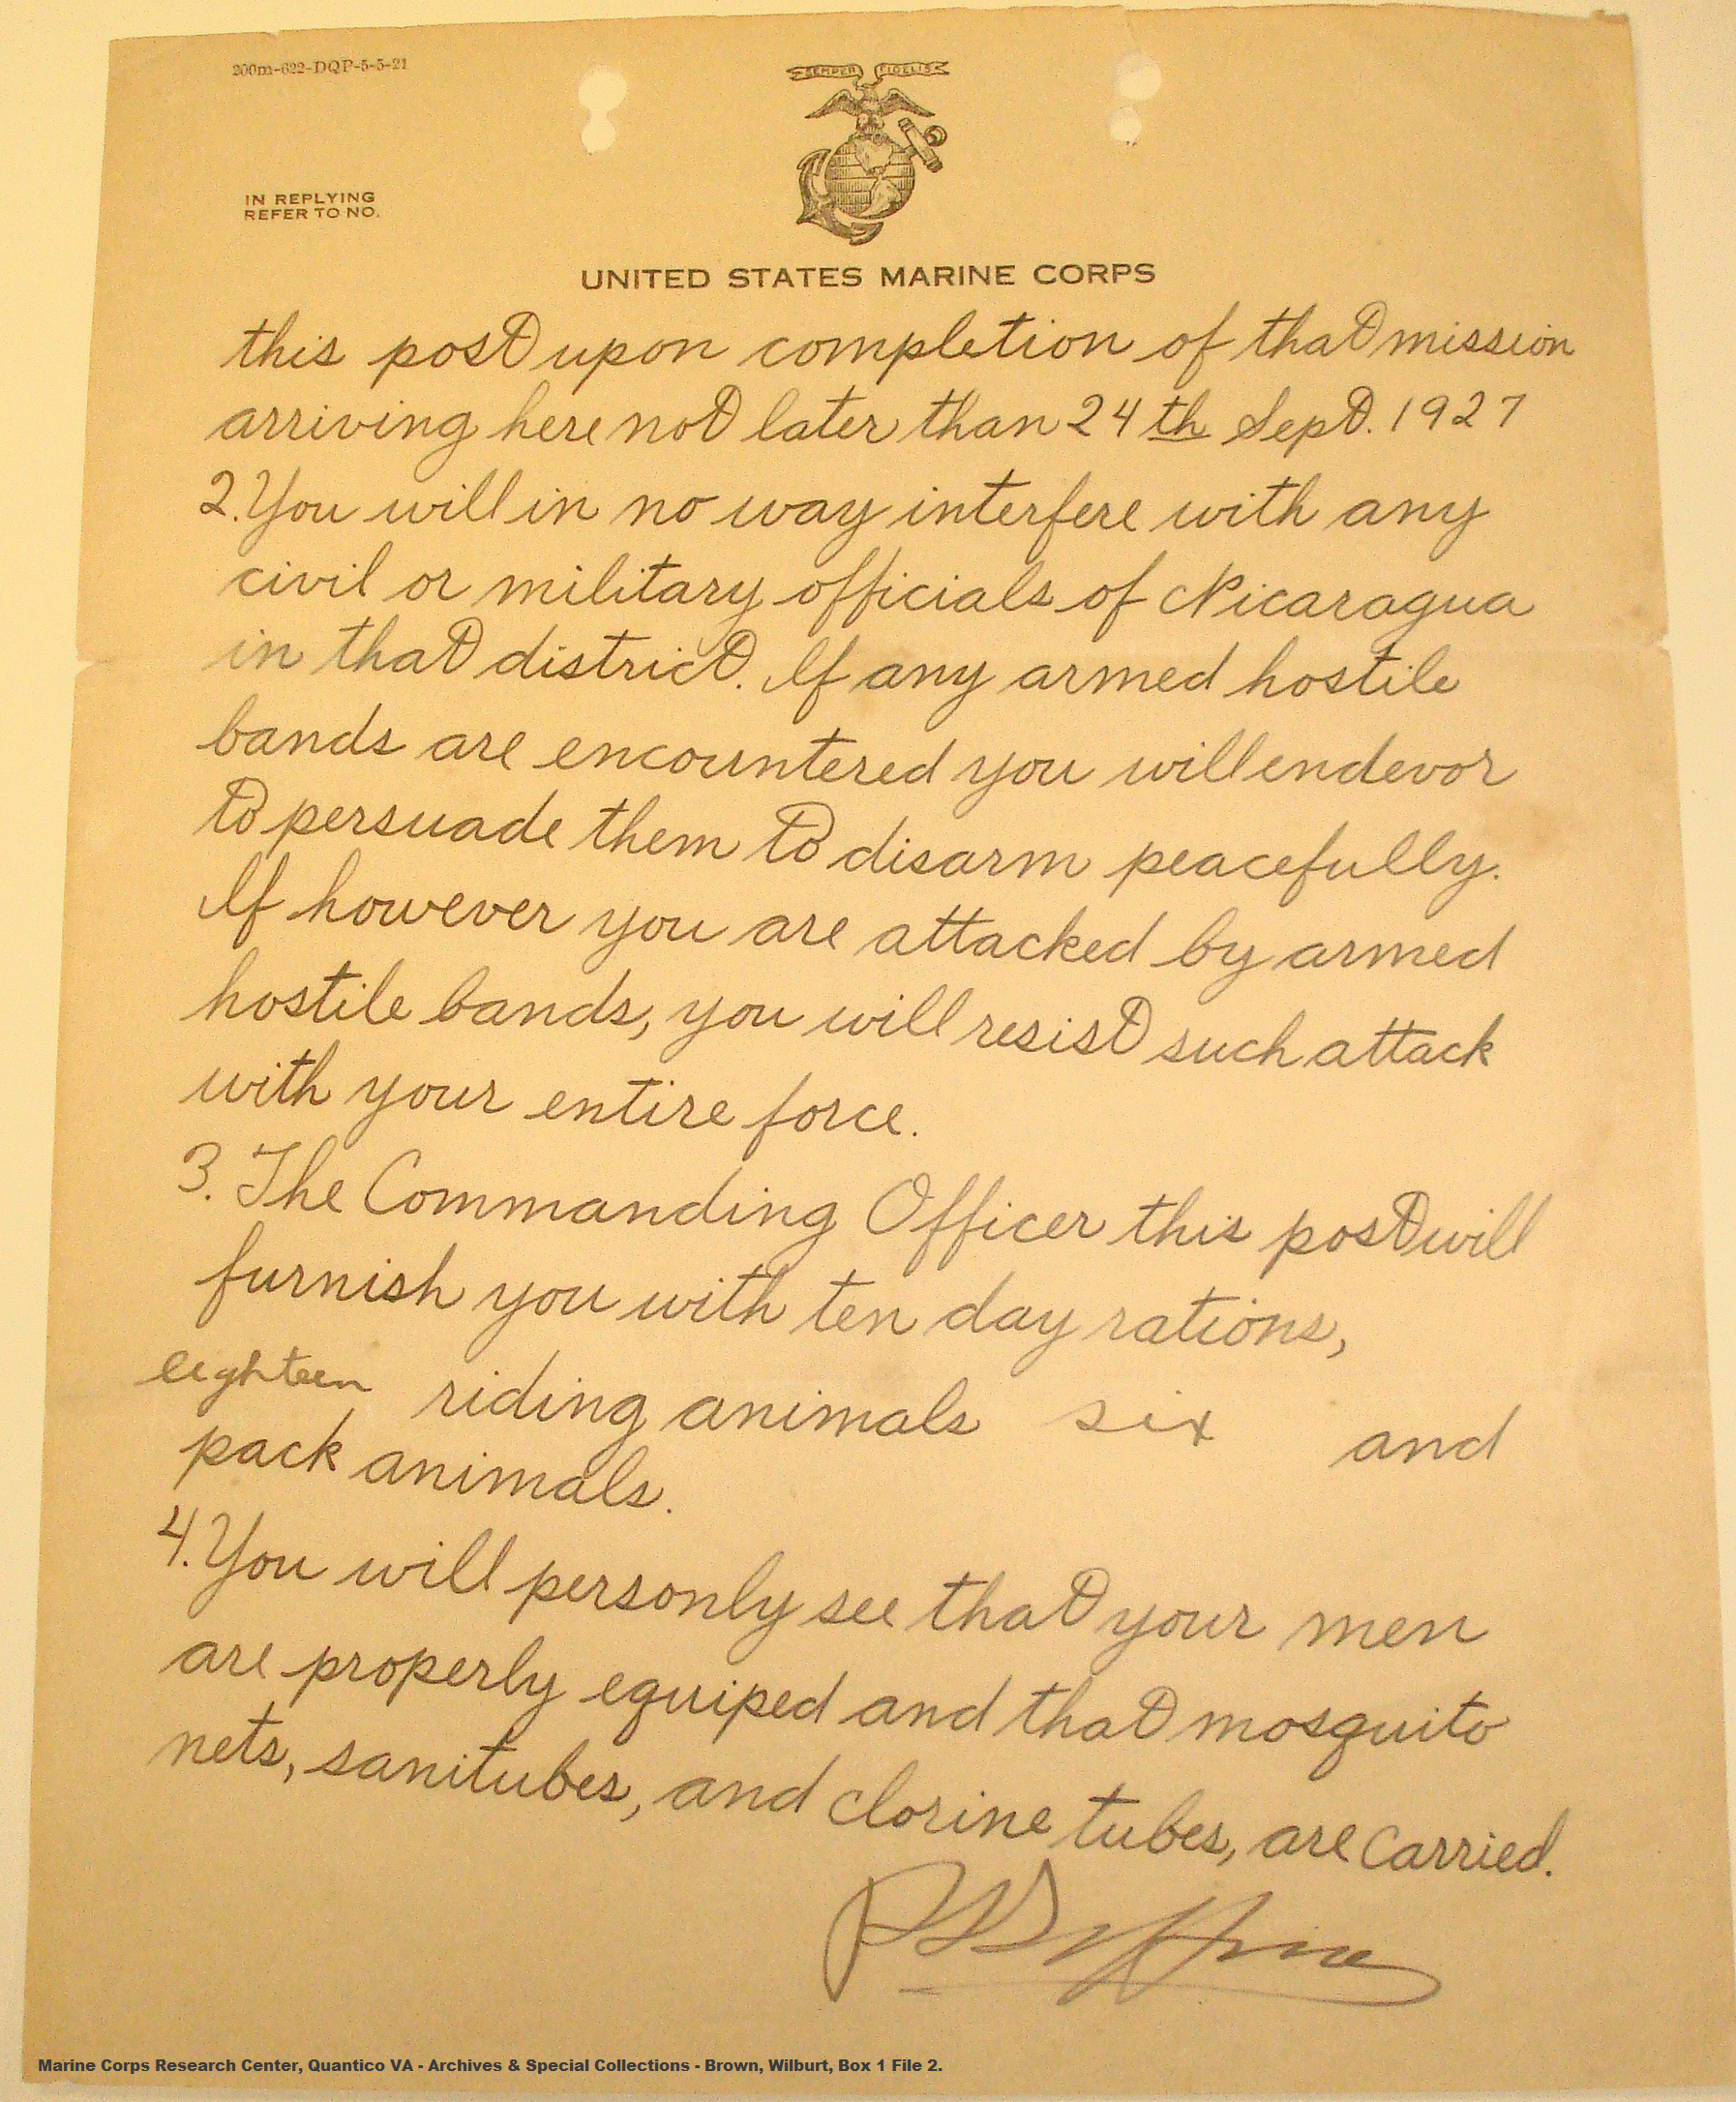 200m-622-DQP-5-5-21
SEMPER FIDELIS
IN REPLYING
REFER TO NO.
UNITED STATES MARINE CORPS
this post upon completion of that mission
arriving here not later than 24th Sept. 1927
2. You will in no way interfere with any
civil or military officials of Nicaragua
in that district. If any armed hostile
bands are encountered you will endevor
to persuade them to disarm peacefully.
If however you are attacked by armed
hostile bands, you will resist such attack
with your entire force.
3. The Commanding Officer this post will
furnish you with ten day rations,
eighteen riding animals six and
pack animals.
4. You will personly see that your men
are properly equiped and that mosquito
nets, sanitubes, and clorine tubes, are carried.
Marine Corps Research Center, Quantico VA - Archives & Special Collections - Brown, Wilburt, Box 1 File 2.